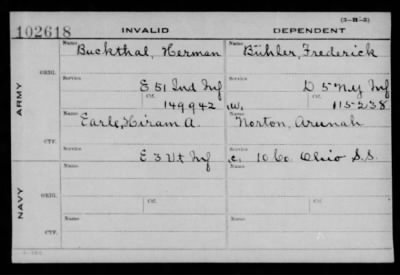 (3—H—3)
102618 INVALID DEPENDENT
Name Name
Buckthal, Herman Bühler, Frederick
ORIG.
Service Service
E 51 Ind Inf D 5 NY Inf
Ctf. Ctf.
149942 W. 115238
ARMY
Name Name
Earle, Hiram A. Norton, Arunah
CTF.
Service Service
E 3 Vt Inf c. 10 Co. Ohio S.S.
NAVY
Name Name
ORIG.
Ctf. Ctf.
Name Name
CTF.